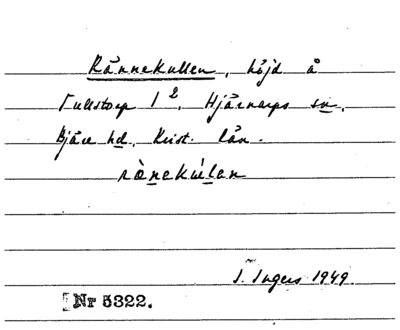 Rånnekullen, höjd å
Tullstorp 1², Hjärnarps sn,
Bjäre hd, Krist. län.
rànekúlan
I. Ingers 1949.
Nr 5322.